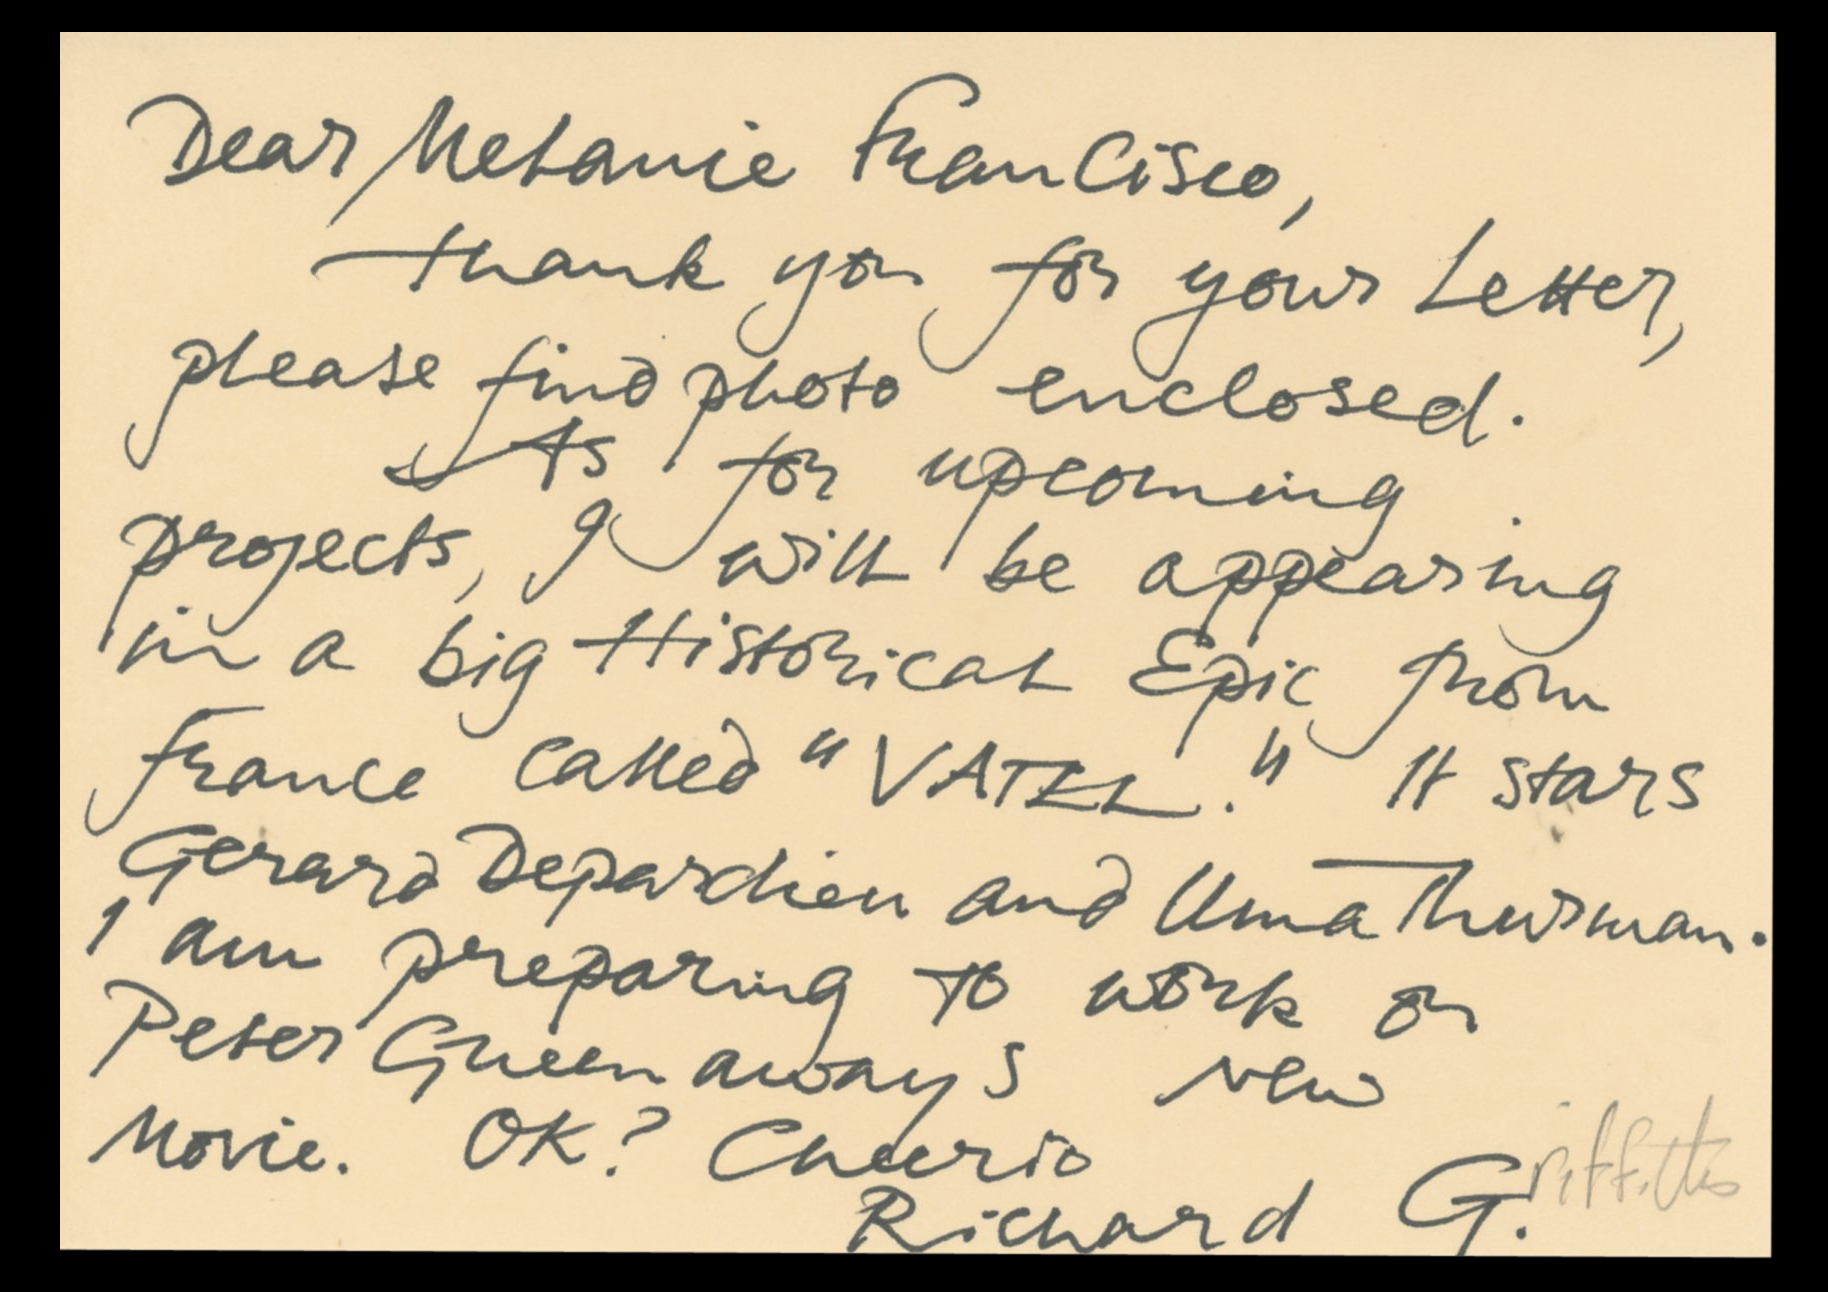 Dear Melanie Francisco,
thank you for your Letter,
please find photo enclosed.
As for upcoming
projects, I will be appearing
in a big Historical Epic from
France called "VATEL." It stars
Gerard Depardieu and Uma Thurman.
I am preparing to work on
Peter Greenaways New
Movie. OK? Cheerio
Richard G.riffiths